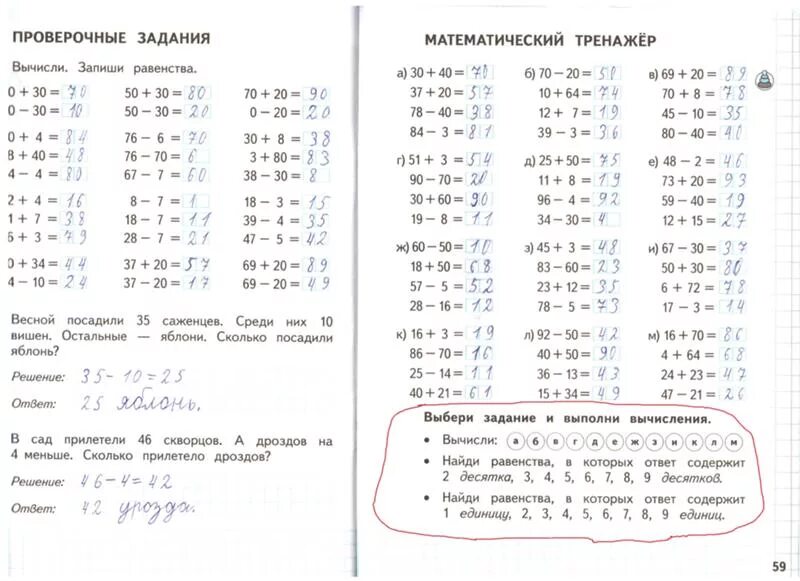 ПРОВЕРОЧНЫЕ ЗАДАНИЯ
Вычисли. Запиши равенства.
0 + 30 = 70 50 + 30 = 80 70 + 20 = 90
0 − 30 = 10 50 − 30 = 20 0 − 20 = 20
0 + 4 = 84 76 − 6 = 70 30 + 8 = 38
8 + 40 = 48 76 − 70 = 6 3 + 80 = 83
4 − 4 = 80 67 − 7 = 60 38 − 30 = 8
2 + 4 = 16 8 − 7 = 1 18 − 3 = 15
1 + 7 = 38 18 − 7 = 11 39 − 4 = 35
6 + 3 = 79 28 − 7 = 21 47 − 5 = 42
0 + 34 = 44 37 + 20 = 57 69 + 20 = 89
4 − 10 = 24 37 − 20 = 17 69 − 20 = 49
Весной посадили 35 саженцев. Среди них 10
вишен. Остальные — яблони. Сколько посадили
яблонь?
Решение: 35-10=25
Ответ: 25 яблонь.
В сад прилетели 46 скворцов. А дроздов на
4 меньше. Сколько прилетело дроздов?
Решение: 46-4=42
Ответ: 42 урозда.
МАТЕМАТИЧЕСКИЙ ТРЕНАЖЁР
а) 30 + 40 = 70 б) 70 − 20 = 50 в) 69 + 20 = 89
37 + 20 = 57 10 + 64 = 74 70 + 8 = 78
78 − 40 = 38 12 + 7 = 19 45 − 10 = 35
84 − 3 = 81 39 − 3 = 36 80 − 40 = 40
г) 51 + 3 = 54 д) 25 + 50 = 75 е) 48 − 2 = 46
90 − 70 = 20 11 + 8 = 19 73 + 20 = 93
30 + 60 = 90 96 − 4 = 92 59 − 40 = 19
19 − 8 = 11 34 − 30 = 4 12 + 15 = 27
ж) 60 − 50 = 10 з) 45 + 3 = 48 и) 67 − 30 = 37
18 + 50 = 68 83 − 60 = 23 50 + 30 = 80
57 − 5 = 52 23 + 12 = 35 6 + 72 = 78
28 − 16 = 12 78 − 5 = 73 17 − 3 = 14
к) 16 + 3 = 19 л) 92 − 50 = 42 м) 16 + 70 = 86
86 − 70 = 16 40 + 50 = 90 4 + 64 = 68
25 − 14 = 11 36 − 13 = 43 24 + 23 = 47
40 + 21 = 61 15 + 34 = 49 47 − 21 = 26
Выбери задание и выполни вычисления.
• Вычисли: а б в г д е ж з и к л м
• Найди равенства, в которых ответ содержит
2 десятка, 3, 4, 5, 6, 7, 8, 9 десятков.
• Найди равенства, в которых ответ содержит
1 единицу, 2, 3, 4, 5, 6, 7, 8, 9 единиц.
59